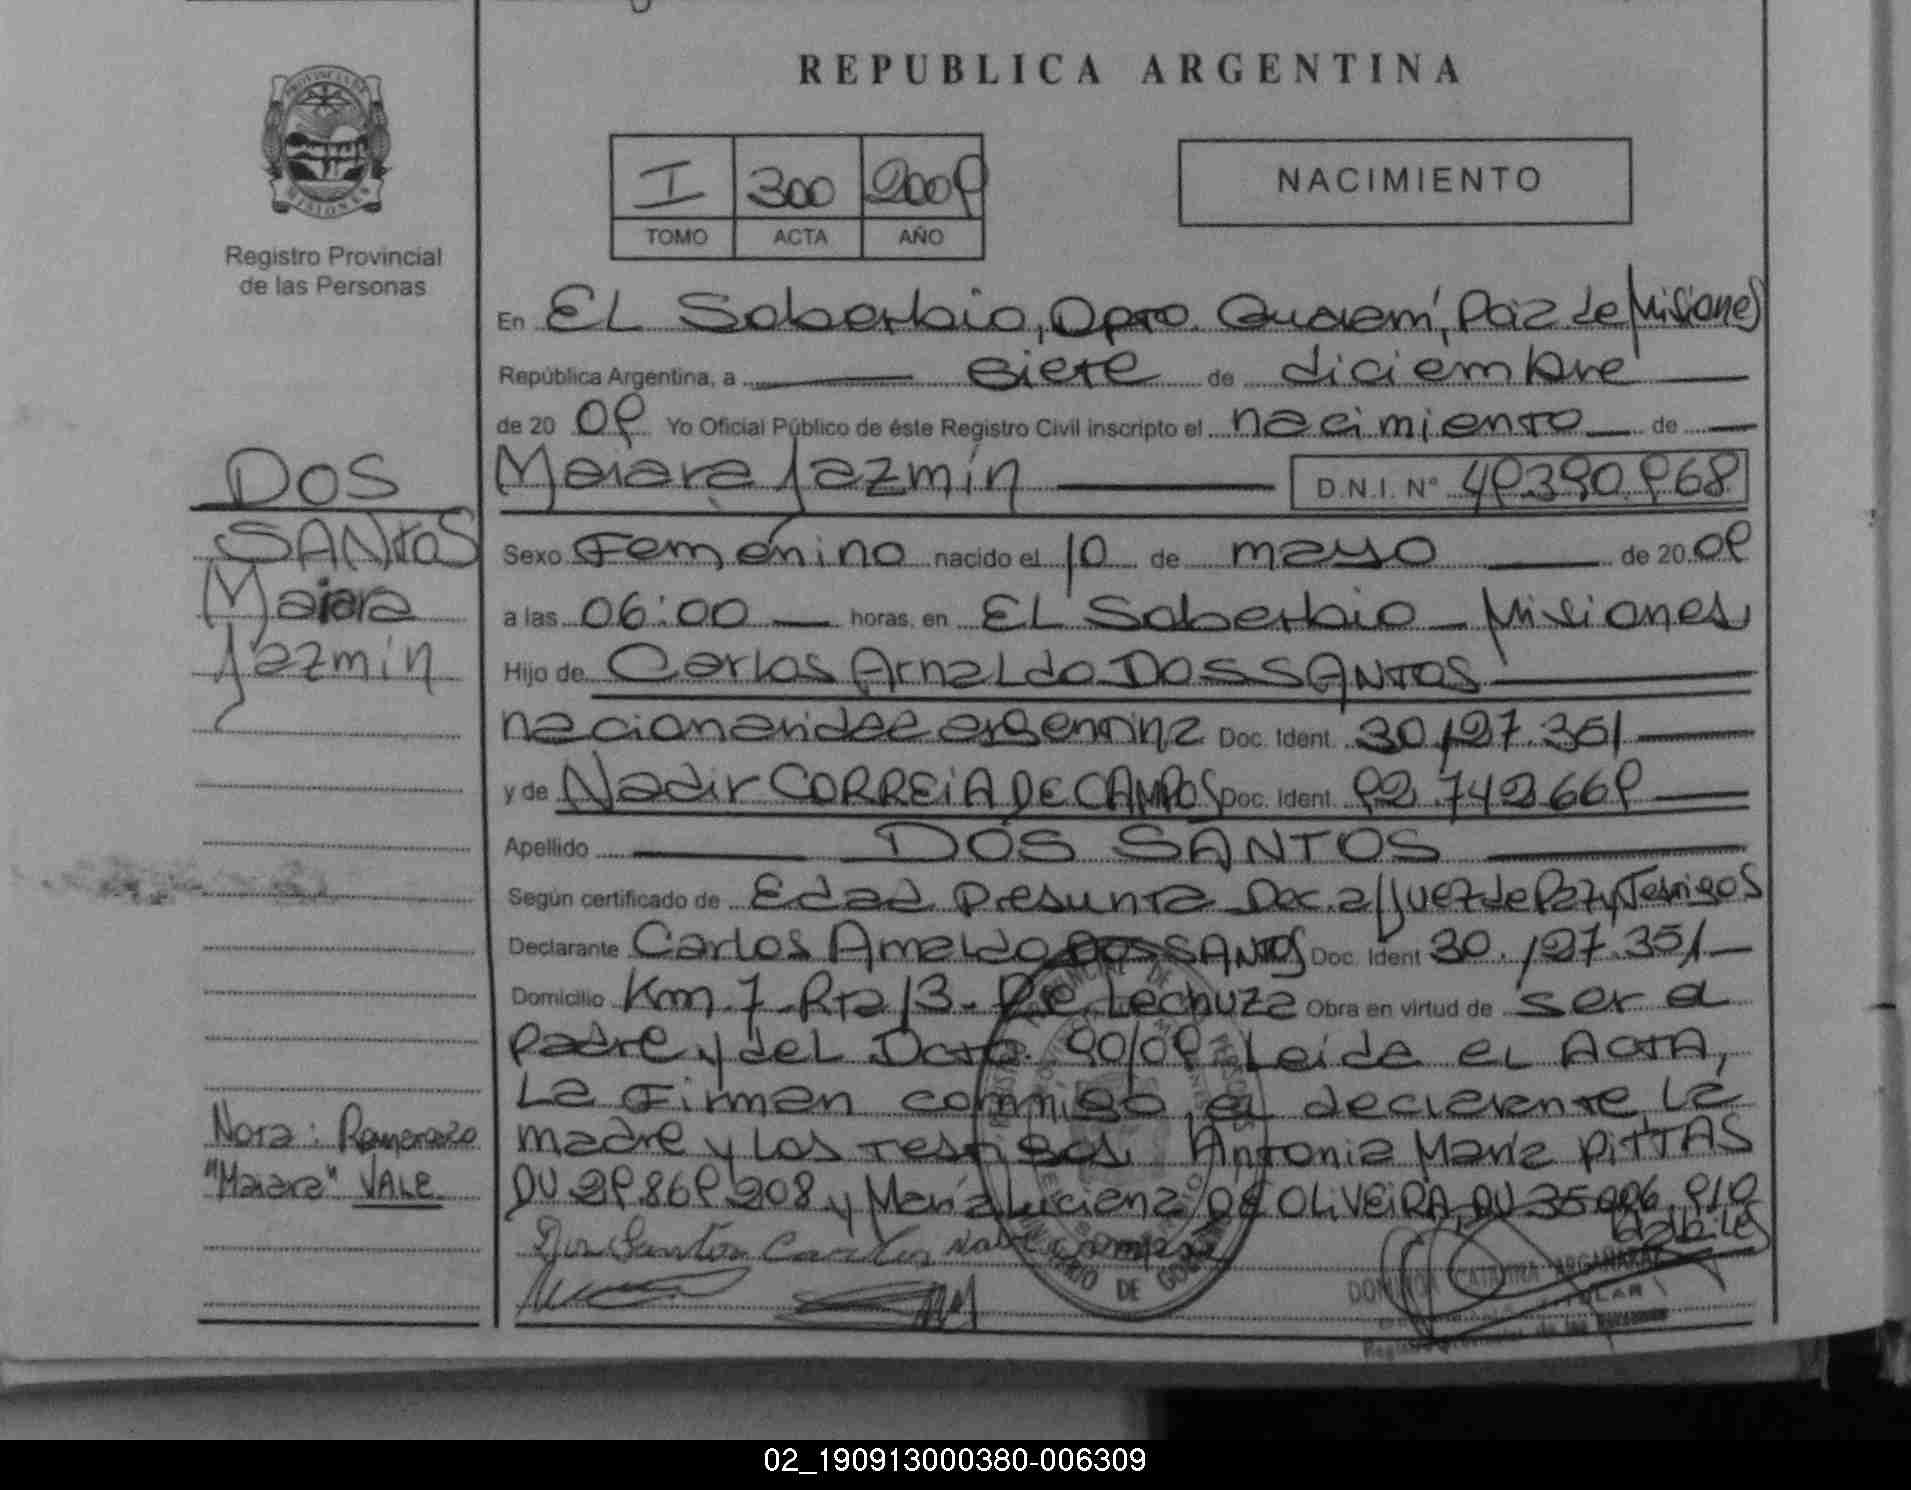 REPUBLICA ARGENTINA
PROVINCIA DE
MISIONES
Registro Provincial
de las Personas
I 300 2009
TOMO ACTA AÑO
NACIMIENTO
En EL Soberbio, Dpto. Guaraní, Pcia de Misiones
República Argentina, a siete de diciembre
de 20 09 Yo Oficial Público de éste Registro Civil inscripto el nacimiento de
Maiara Jazmín D.N.I. N° 49.390.968
Sexo Femenino nacido el 10 de mayo de 20 09
a las 06:00 horas, en EL Soberbio - Misiones
Hijo de Carlos Arnaldo DOS SANTOS
nacionalidad argentina Doc. Ident. 30.127.351
y de Nadir CORREIA DE CAMPOS Doc. Ident. 92.742.669
Apellido DOS SANTOS
Según certificado de Edad Presunta Doc. a/Juez de Paz y Testigos
Declarante Carlos Arnaldo DOS SANTOS Doc. Ident 30.127.351
Domicilio Km 7 - Rta 13 - Lechuza Obra en virtud de ser el
padre y del Dcto. 90/09 Leida el ACTA,
La Firman conmigo, el declarante, La
madre y los testigos, Antonia María PITTAS
DU 29.869.208 y María Luciena DE OLIVEIRA, DU
Dos Santos Carlos
DE
DOMINGA CATALINA ARGAÑARAZ
TITULAR
DOS
SANTOS
Maiara
Jazmín
Nota:
"Maiara" VALE
02_190913000380-006309